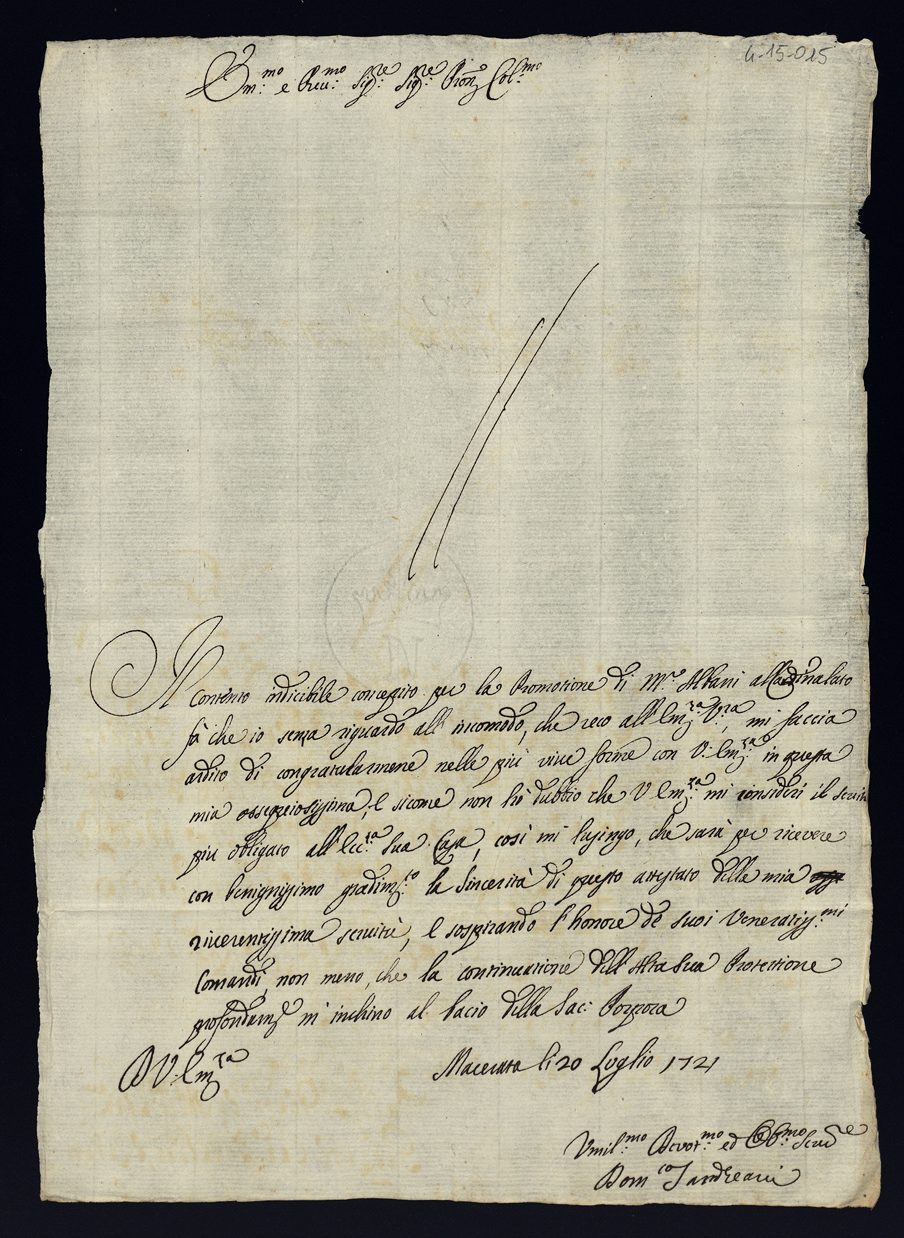 4-15-015
Em:mo e Reu:mo Sig:re Sig:re Pron Col:mo
Il Contento indicibile concepito per la Promotione di M.r Albani alla Cardinalato
fà che io senza riguardo all' incomodo, che reco all' Em:za V:ra, mi faccia
ardito di congratularmene nelle più viue forme con V: Em:za in questa
mia ossequiosissima; E sicome non hò dubbio che V Em:za mi consideri il seruit
piu obligato all' Ecc:ma Sua Casa, così mi lusingo, che sarà per riceuere
con benignissimo gradim:to la Sincerità di questo attestato della mia
riuerentissima seruitù, E sospirando l' honore de suoi Veneratiss:mi
Comandi, non meno, che la continuatione dell' Alta Sua Protettione
profondam:e m' inchino al bacio della Sac: Porpora
D V: Em:za
Macerata li 20 Luglio 1721
Vmil:mo Deuot:mo ed Obb:mo Seru:re
Dom:co